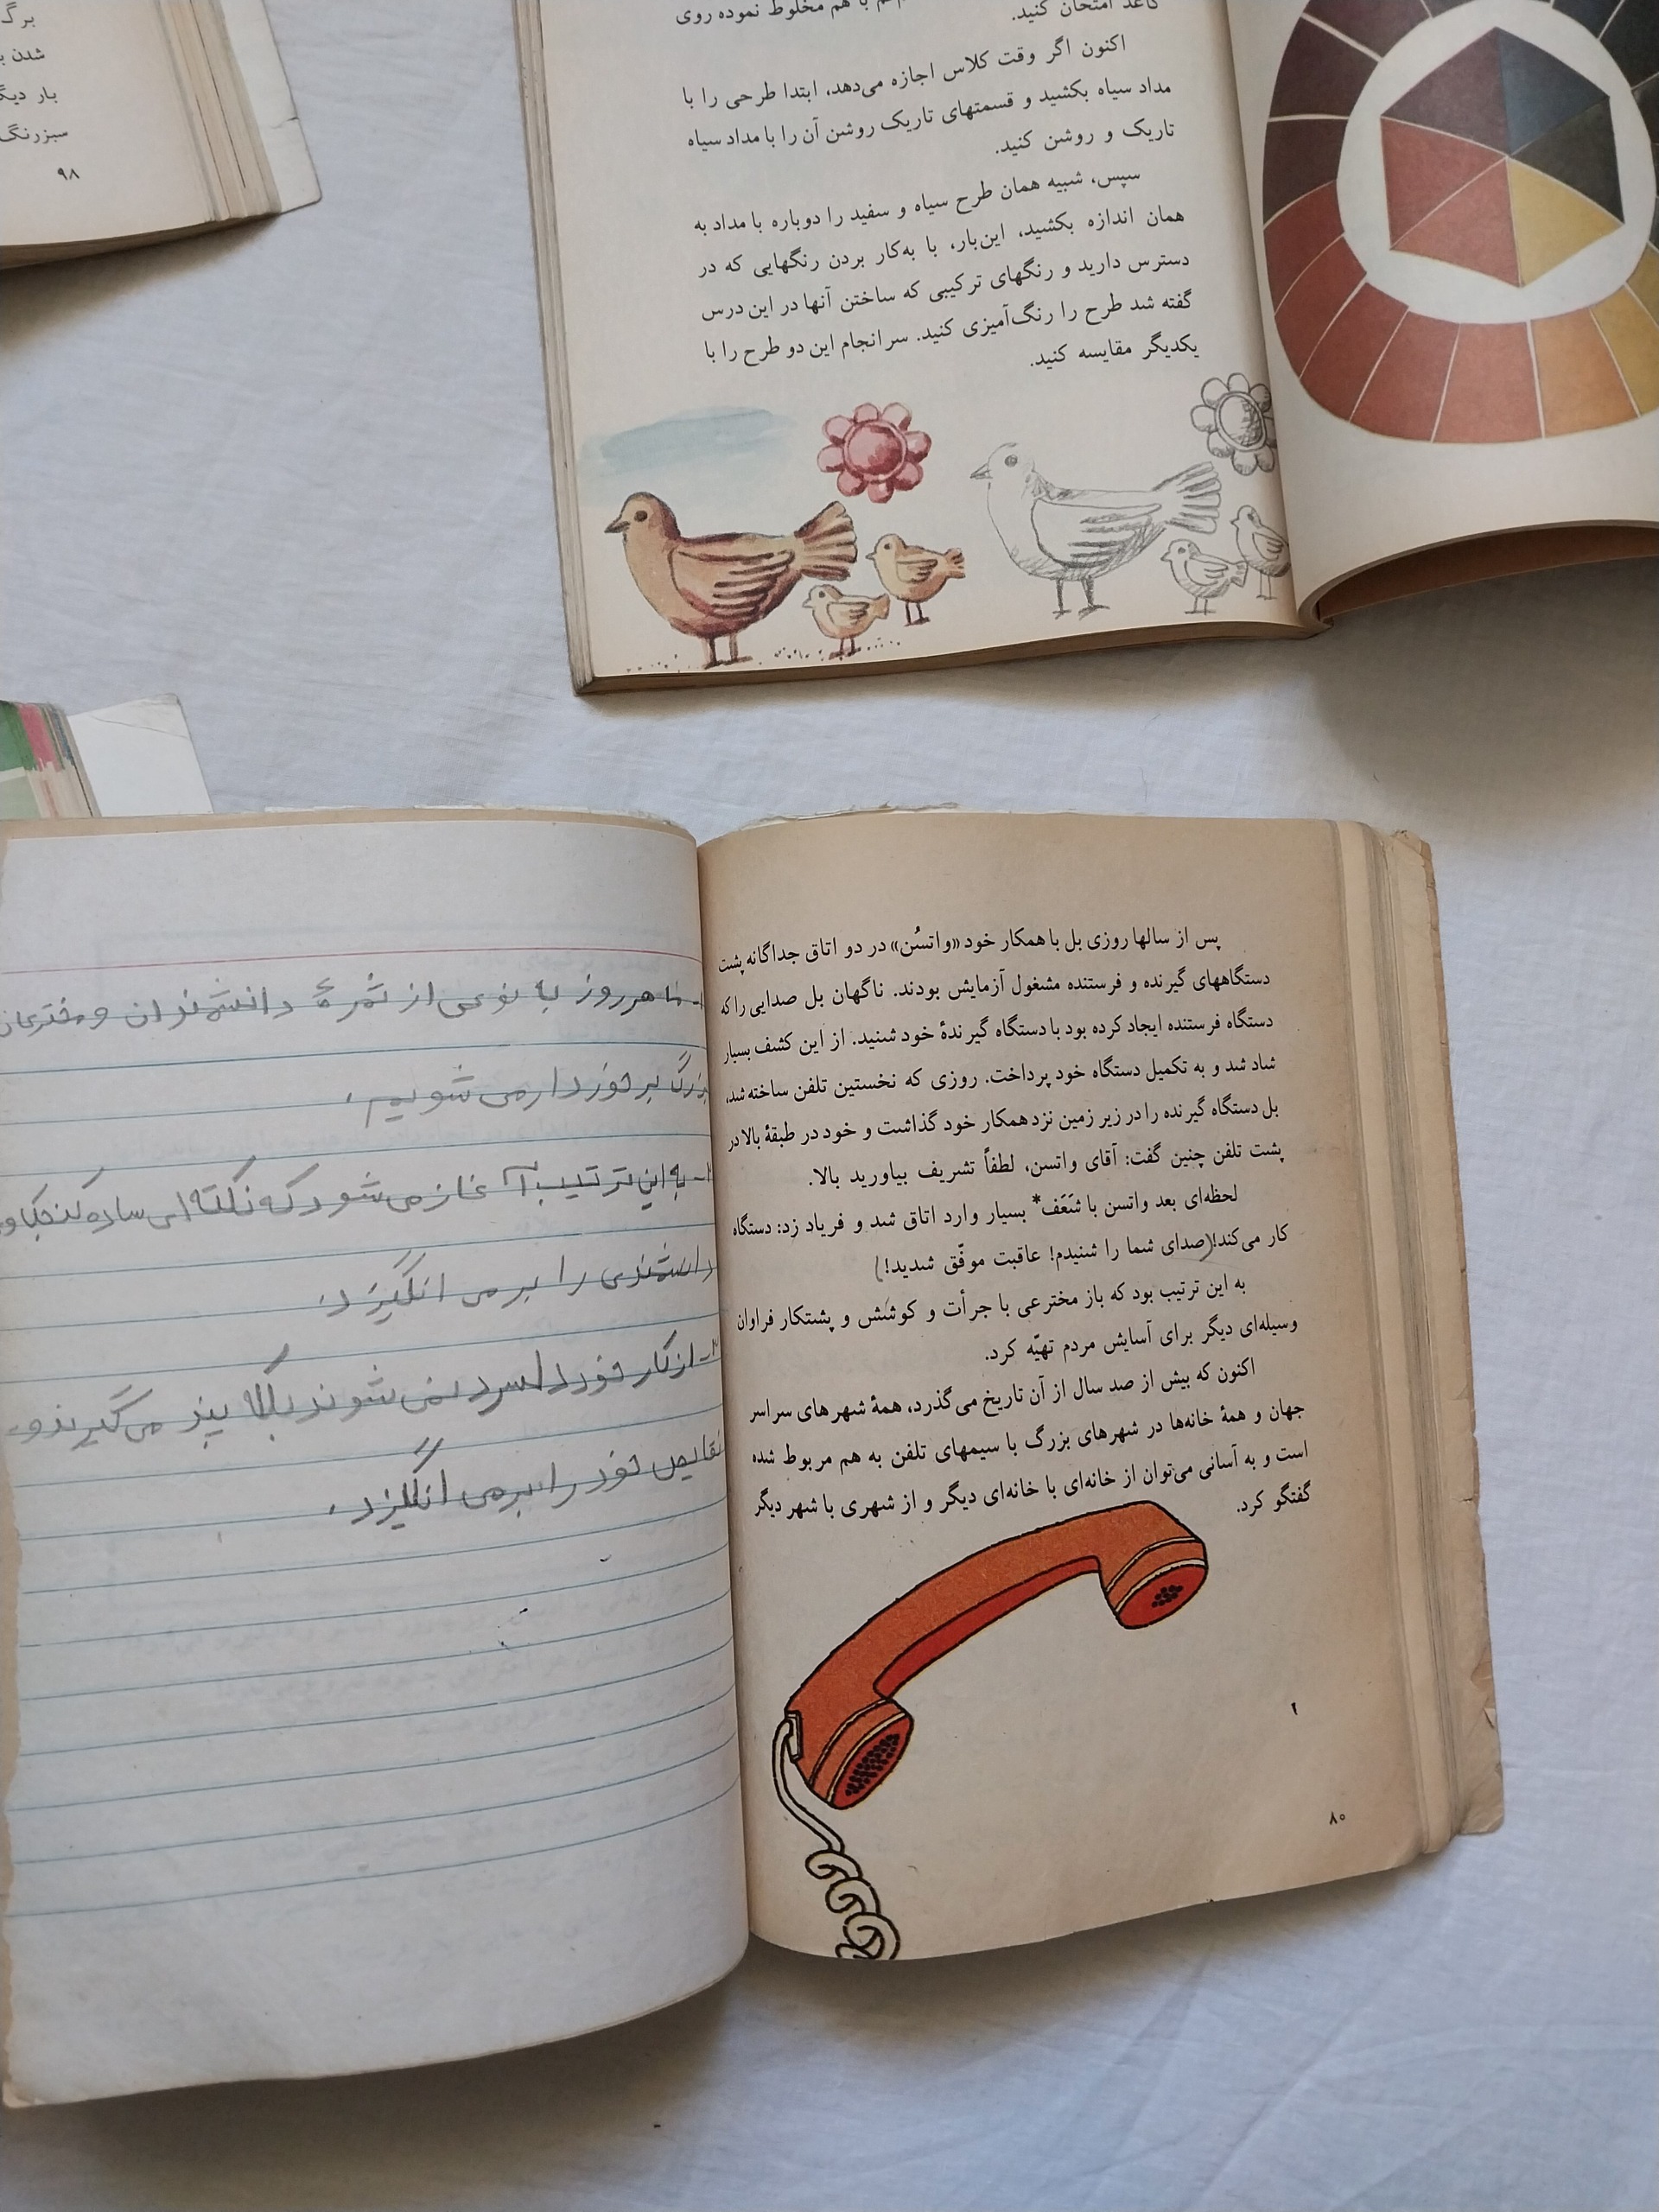 برگ
شدن
بار
سبزرنگ
۹۸
کاغذ امتحان کنید.
با هم مخلوط نموده روی
اکنون اگر وقت کلاس اجازه می‌دهد، ابتدا طرحی را با
مداد سیاه بکشید و قسمتهای تاریک روشن آن را با مداد سیاه
تاریک و روشن کنید.
سپس، شبیه همان طرح سیاه و سفید را دوباره با مداد به
همان اندازه بکشید، این‌بار، با به‌کار بردن رنگهایی که در
دسترس دارید و رنگهای ترکیبی که ساختن آنها در این درس
گفته شد طرح را رنگ‌آمیزی کنید. سرانجام این دو طرح را با
یکدیگر مقایسه کنید.
پس از سالها روزی بل با همکار خود «واتسُن» در دو اتاق جداگانه پشت
دستگاههای گیرنده و فرستنده مشغول آزمایش بودند. ناگهان بل صدایی را که
دستگاه فرستنده ایجاد کرده بود با دستگاه گیرندهٔ خود شنید. از این کشف بسیار
شاد شد و به تکمیل دستگاه خود پرداخت. روزی که نخستین تلفن ساخته شد،
بل دستگاه گیرنده را در زیر زمین نزد همکار خود گذاشت و خود در طبقهٔ بالا در
پشت تلفن چنین گفت: آقای واتسن، لطفاً تشریف بیاورید بالا.
لحظه‌ای بعد واتسن با شَعَف* بسیار وارد اتاق شد و فریاد زد: دستگاه
کار می‌کند! (صدای شما را شنیدم! عاقبت موفّق شدید!)
به این ترتیب بود که باز مخترعی با جرأت و کوشش و پشتکار فراوان
وسیله‌ای دیگر برای آسایش مردم تهیّه کرد.
اکنون که بیش از صد سال از آن تاریخ می‌گذرد، همهٔ شهرهای سراسر
جهان و همهٔ خانه‌ها در شهرهای بزرگ با سیمهای تلفن به هم مربوط شده
است و به آسانی می‌توان از خانه‌ای با خانه‌ای دیگر و از شهری با شهر دیگر
گفتگو کرد.
۸۰
۱- ما هر روز به نوعی از ثمرهٔ دانشمندان و مخترعان
بزرگ برخوردار می شویم.
۲- به این ترتیب آغاز می شود که نکته ای ساده کنجکاوی
دانشمندی را بر می انگیزد.
۳- از کار خود دلسرد نمی شوند بلکه پند می گیرند و
نقایص خود را بر می انگیزد.